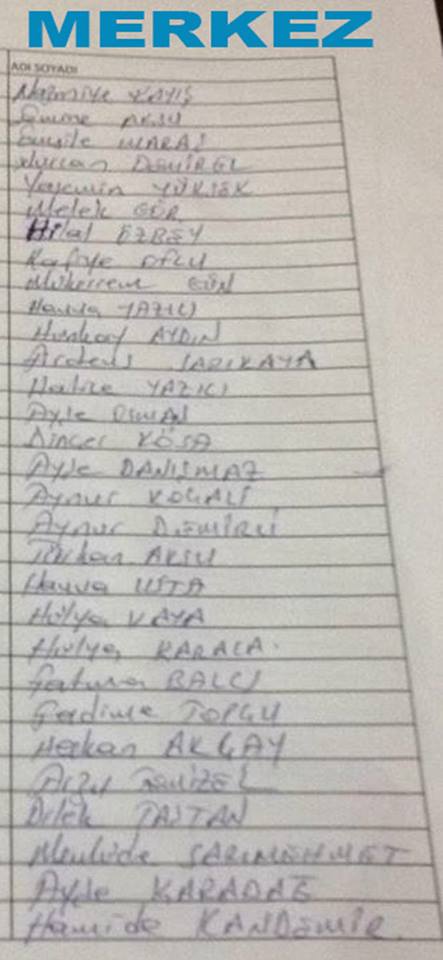 MERKEZ
ADI SOYADI
Nazmiye KAYIŞ
Emine AKSU
MARAŞ
Nurcan DEMİREL
Yasemin YÜKSEK
Melek GÜR
Hilal ÖZBEY
Mükerrem GÜN
Havva YAZICI
AYDIN
SARIKAYA
Hatice YAZICI
Ayşe
Dinçer KÖSA
Ayşe DANIŞMAZ
Aynur KOCALİ
Aynur DEMİRCİ
Türkan AKSU
Havva USTA
Hülya KAYA
Hülya KARACA
Fatma BALCI
Fadime TOPÇU
Herkan AKÇAY
Arzu TEMİZEL
Dilek TAŞTAN
Mevlüde SARIMEHMET
Ayşe KARADAĞ
Hamide KANDEMİR